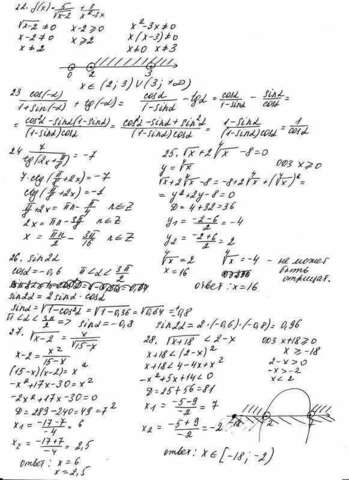 22. f(x) = 5/√(x-2) + 8/(x²-3x)
√(x-2) ≠ 0 x-2 ≥ 0 x²-3x ≠ 0
x-2 ≠ 0 x ≥ 2 x(x-3) ≠ 0
x ≠ 2 x ≠ 0 x ≠ 3
0 2 3
x ∈ (2; 3) ∪ (3; +∞)
23 cos(-α)/(1+sin(-α)) + tg(-α) = cosα/(1-sinα) - tgα = cosα/(1-sinα) - sinα/cosα =
= (cos²α - sinα(1-sinα))/((1-sinα)cosα) = (cos²α - sinα + sin²α)/((1-sinα)cosα) = (1-sinα)/((1-sinα)cosα) = 1/cosα
25. √x + 2⁴√x - 8 = 0
y = ⁴√x ОДЗ x ≥ 0
√x + 2⁴√x - 8 = -8 + 2⁴√x + (⁴√x)² =
= y² + 2y - 8 = 0
D = 4 + 32 = 36
y₁ = (-2-6)/2 = -4
y₂ = (-2+6)/2 = 2
⁴√x = 2 ⁴√x = -4 - не может
x = 16 быть
отрицат.
ответ: x = 16
26. sin2α
cosα = -0,6 π < α < 3π/2
sin2α = 2sinα · cosα
sinα = √(1-cos²α) = √(1-0,36) = √0,64 = 0,8
π < α < 3π/2 => sinα = -0,8 sin2α = 2·(-0,6)·(-0,8) = 0,96
27. √(x-2) = x/√(15-x)
x-2 = x²/(15-x)
(15-x)(x-2) = x²
-x² + 17x - 30 = x²
-2x² + 17x - 30 = 0
D = 289 - 240 = 49 = 7²
x₁ = (-17-7)/-4 = 6
x₂ = (-17+7)/-4 = 2,5
ответ: x = 6
x = 2,5
28. √(x+18) < 2-x ОДЗ x+18 ≥ 0
x ≥ -18
x+18 < (2-x)² 2-x > 0
x+18 < 4-4x+x² -x > -2
-x² + 5x + 14 < 0 x < 2
D = 25 + 56 = 81
x₁ = (-5-9)/-2 = 7
x₂ = (-5+9)/-2 = -2
ответ: x ∈ [-18; -2)